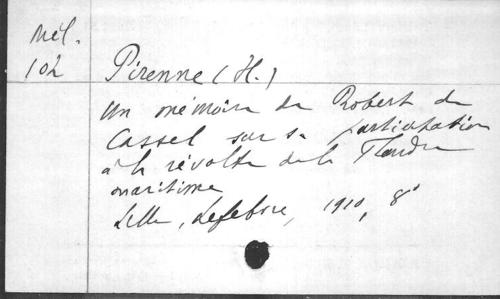 Mél.
102
Pirenne (H.)
Un mémoire de Robert de
Cassel sur sa participation
à la révolte de la Flandre
maritime
Lille, Lefebvre, 1910, 8°